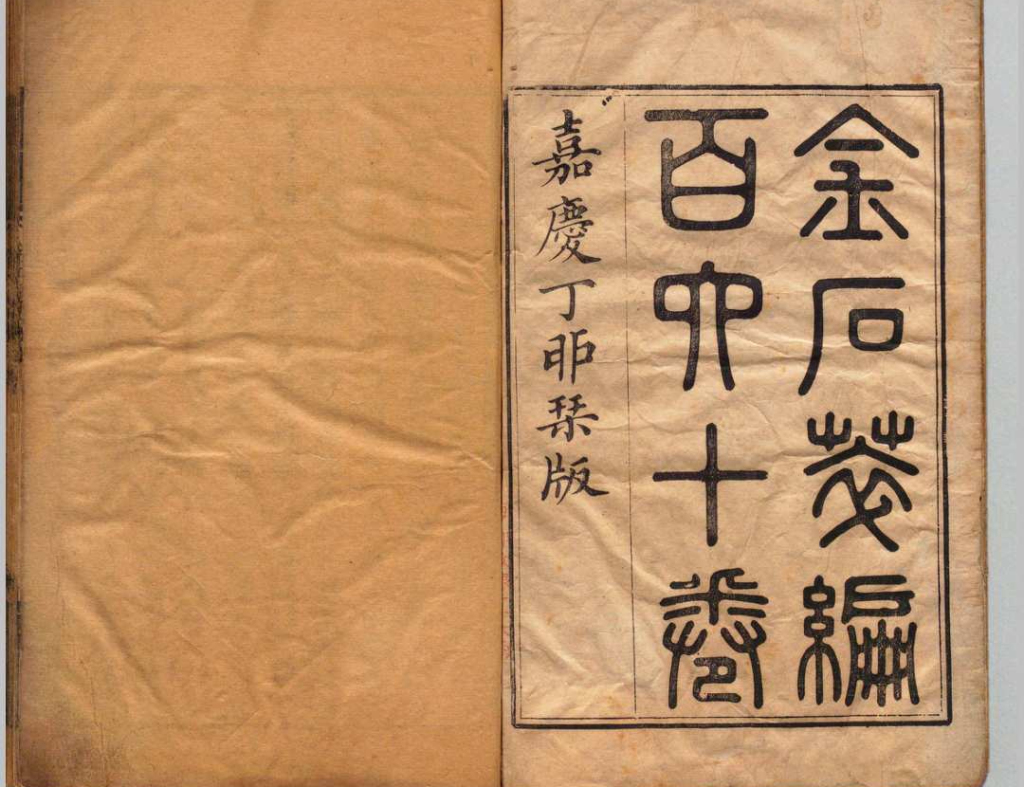 金石萃編
百六十卷
嘉慶丁丣栞版